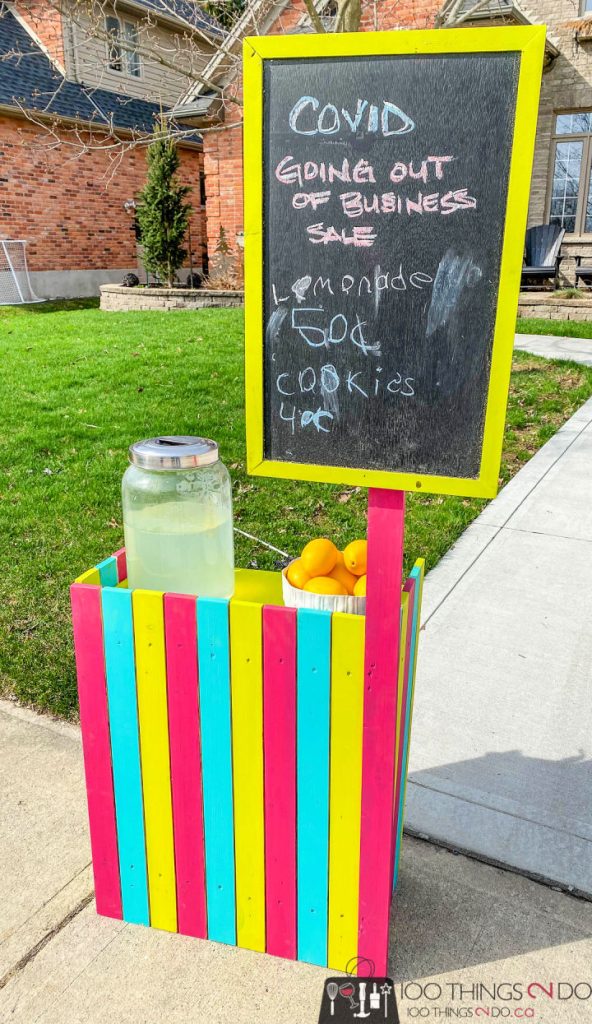 COVID
GOING OUT
OF BUSINESS
SALE
Lemonade
50¢
cookies
40¢
100 THINGS 2 DO
100 THINGS2DO.ca